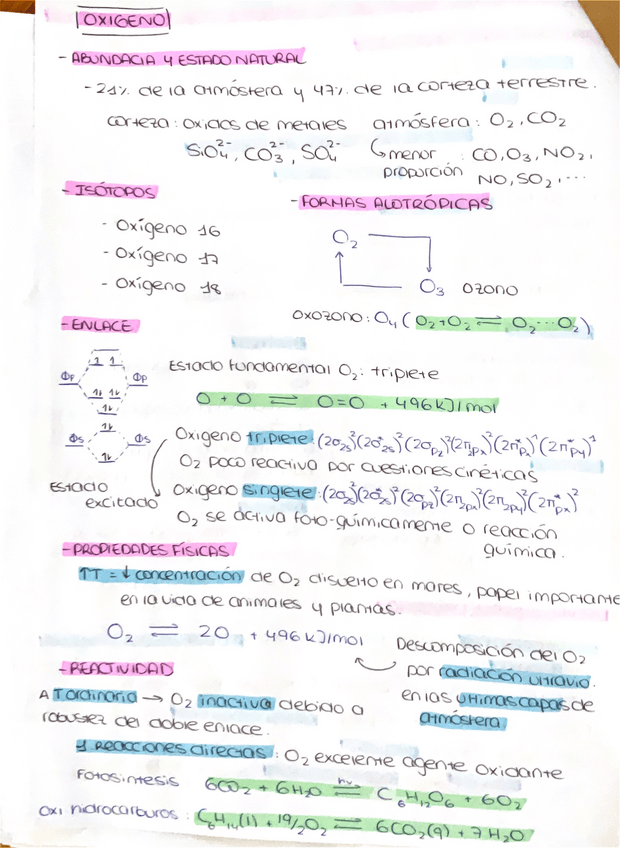 OXIGENO
- ABUNDACIA Y ESTADO NATURAL
- 21% de la atmósfera y 47% de la corteza terrestre.
corteza: oxidos de metales atmósfera: O₂, CO₂
SiO₄²⁻, CO₃²⁻, SO₄²⁻ ↳ menor proporción : CO, O₃, NO₂, NO, SO₂, ...
- ISÓTOPOS
- Oxígeno 16
- Oxígeno 17
- Oxígeno 18
- FORMAS ALOTRÓPICAS
O₂
O₃ ozono
oxozono: O₄ (O₂+O₂ ⇌ O₂···O₂)
- ENLACE
Φp Φp
Φs Φs
Estado fundamental O₂: triplete
O + O ⇌ O=O + 496 kJ/mol
Oxigeno triplete: (2σ₂s)²(2σ*₂s)²(2σpz)²(2π₂px)²(2π*px)¹(2π*py)¹
O₂ poco reactivo por cuestiones cinéticas
Estado excitado
Oxigeno singlete: (2σ₂s)²(2σ*₂s)²(2σpz)²(2π₂px)²(2π₂py)²(2π*px)²
O₂ se activa foto-químicamente o reacción
química.
- PROPIEDADES FÍSICAS
↑T = ↓ concentración de O₂ disuelto en mares, papel importante
en la vida de animales y plantas.
O₂ ⇌ 2O + 496 kJ/mol
Descomposición del O₂
por radiación ultravio.
en las últimas capas de
atmósfera
- REACTIVIDAD
A T ordinaria → O₂ inactivo debido a
robustez del doble enlace.
Reacciones directas: O₂ excelente agente oxidante
Fotosintesis 6CO₂ + 6H₂O ⇌ (hν) C₆H₁₂O₆ + 6O₂
Oxi hidrocarburos: C₆H₁₄(l) + 19/2O₂ ⇌ 6CO₂(g) + 7H₂O